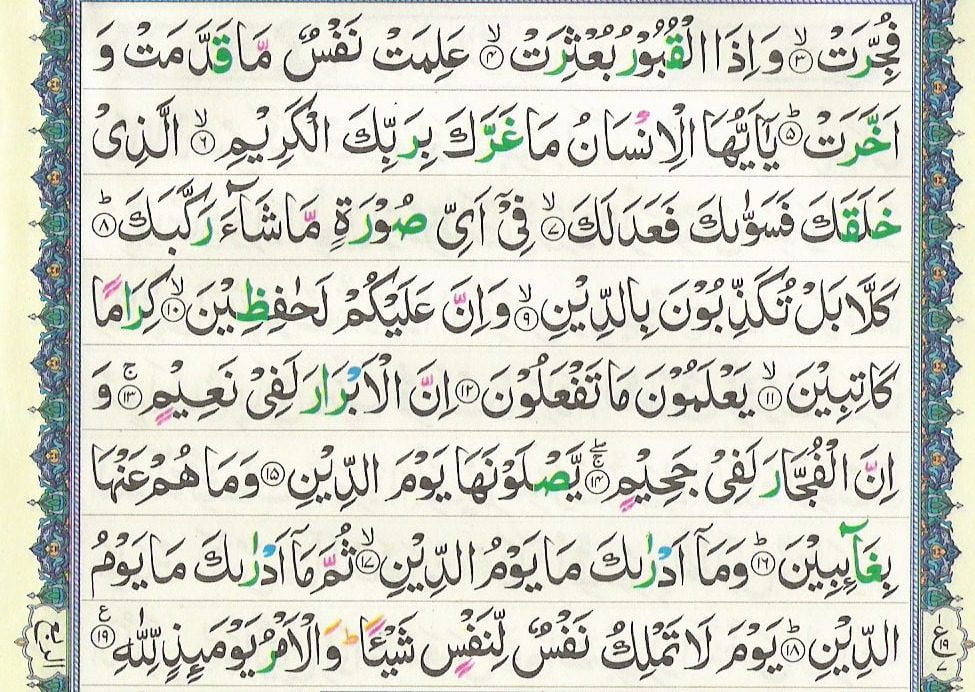 فُجِّرَتۡ ۙ‏﴿۳﴾ وَ اِذَا الۡقُبُوۡرُ بُعۡثِرَتۡ ۙ‏﴿۴﴾ عَلِمَتۡ نَفۡسٌ مَّا قَدَّمَتۡ وَ
اَخَّرَتۡ ؕ‏﴿۵﴾ يٰۤاَيُّهَا الۡاِنۡسَانُ مَا غَرَّكَ بِرَبِّكَ الۡكَرِيۡمِ ۙ‏﴿۶﴾ الَّذِىۡ
خَلَقَكَ فَسَوّٰٮكَ فَعَدَلَكَ ۙ‏﴿۷﴾ فِىۡۤ اَىِّ صُوۡرَةٍ مَّا شَآءَ رَكَّبَكَ ؕ‏﴿۸﴾
كَلَّا بَلۡ تُكَذِّبُوۡنَ بِالدِّيۡنِ ۙ‏﴿۹﴾ وَاِنَّ عَلَيۡكُمۡ لَحٰفِظِيۡنَ ۙ‏﴿۱۰﴾ كِرَامًا
كَاتِبِيۡنَ ۙ‏﴿۱۱﴾ يَعۡلَمُوۡنَ مَا تَفۡعَلُوۡنَ‏﴿۱۲﴾ اِنَّ الۡاَبۡرَارَ لَفِىۡ نَعِيۡمٍ ۚ‏﴿۱۳﴾ وَ
اِنَّ الۡفُجَّارَ لَفِىۡ جَحِيۡمٍ ۚۖ‏﴿۱۴﴾ يَّصۡلَوۡنَهَا يَوۡمَ الدِّيۡنِ‏﴿۱۵﴾ وَمَا هُمۡ عَنۡهَا
بِغَآئِبِيۡنَ ؕ‏﴿۱۶﴾ وَمَاۤ اَدۡرٰٮكَ مَا يَوۡمُ الدِّيۡنِ ۙ‏﴿۱۷﴾ ثُمَّ مَاۤ اَدۡرٰٮكَ مَا يَوۡمُ
الدِّيۡنِ ؕ‏﴿۱۸﴾ يَوۡمَ لَا تَمۡلِكُ نَفۡسٌ لِّنَفۡسٍ شَيۡـًٔا ؕ وَالۡاَمۡرُ يَوۡمَئِذٍ لِّلّٰهِ‏﴿۱۹﴾ ع
الربع
ع ۱۹ ۷